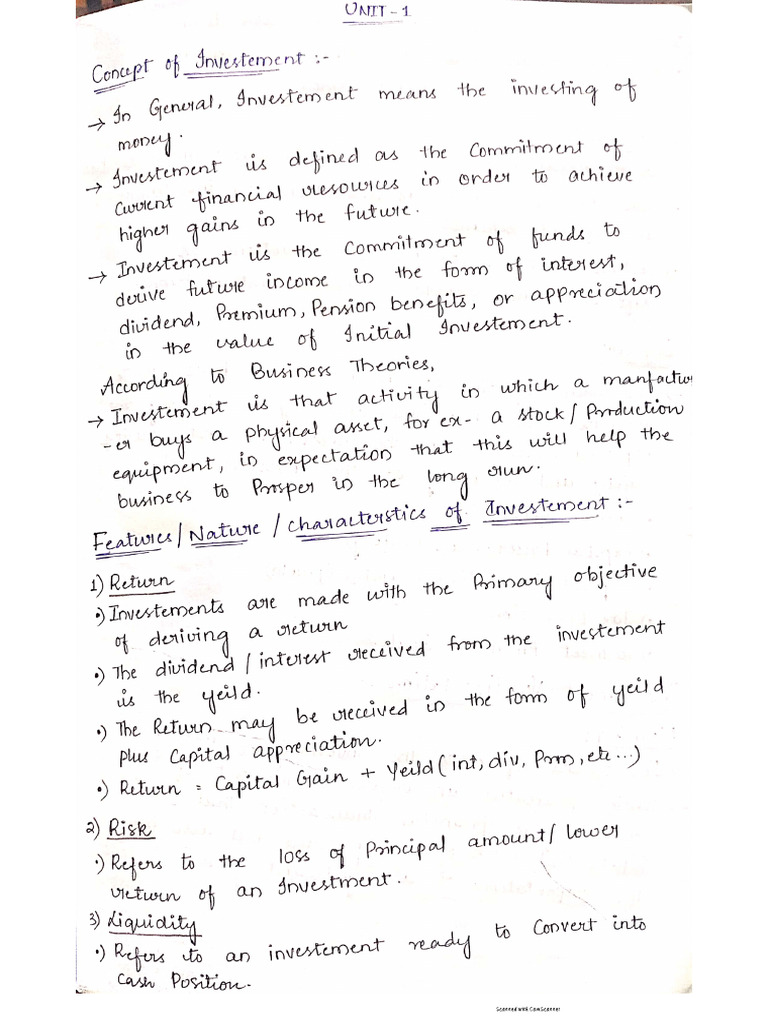 UNIT - 1
Concept of Investement :-
→ In General, Investement means the investing of
money.
→ Investement is defined as the Commitment of
Current financial resources in order to achieve
higher gains in the future.
→ Investement is the Commitment of funds to
derive future income in the form of interest,
dividend, Premium, Pension benefits, or appreciation
in the value of Initial Investement.
According to Business Theories,
→ Investement is that activity in which a manfactur
-er buys a physical asset, for ex- a stock / Production
equipment, in expectation that this will help the
business to Prosper in the long run.
Features / Nature / characterstics of Investement :-
1) Return
•) Investements are made with the Primary objective
of deriving a return
•) The dividend / interest received from the investement
is the yeild.
•) The Return may be received in the form of yeild
plus Capital appreciation.
•) Return = Capital Gain + Yeild (int, div, Prm, etc...)
2) Risk
•) Refers to the loss of Principal amount / lower
return of an Investment.
3) Liquidity
•) Refers to an investement ready to Convert into
Cash Position.
Scanned with CamScanner